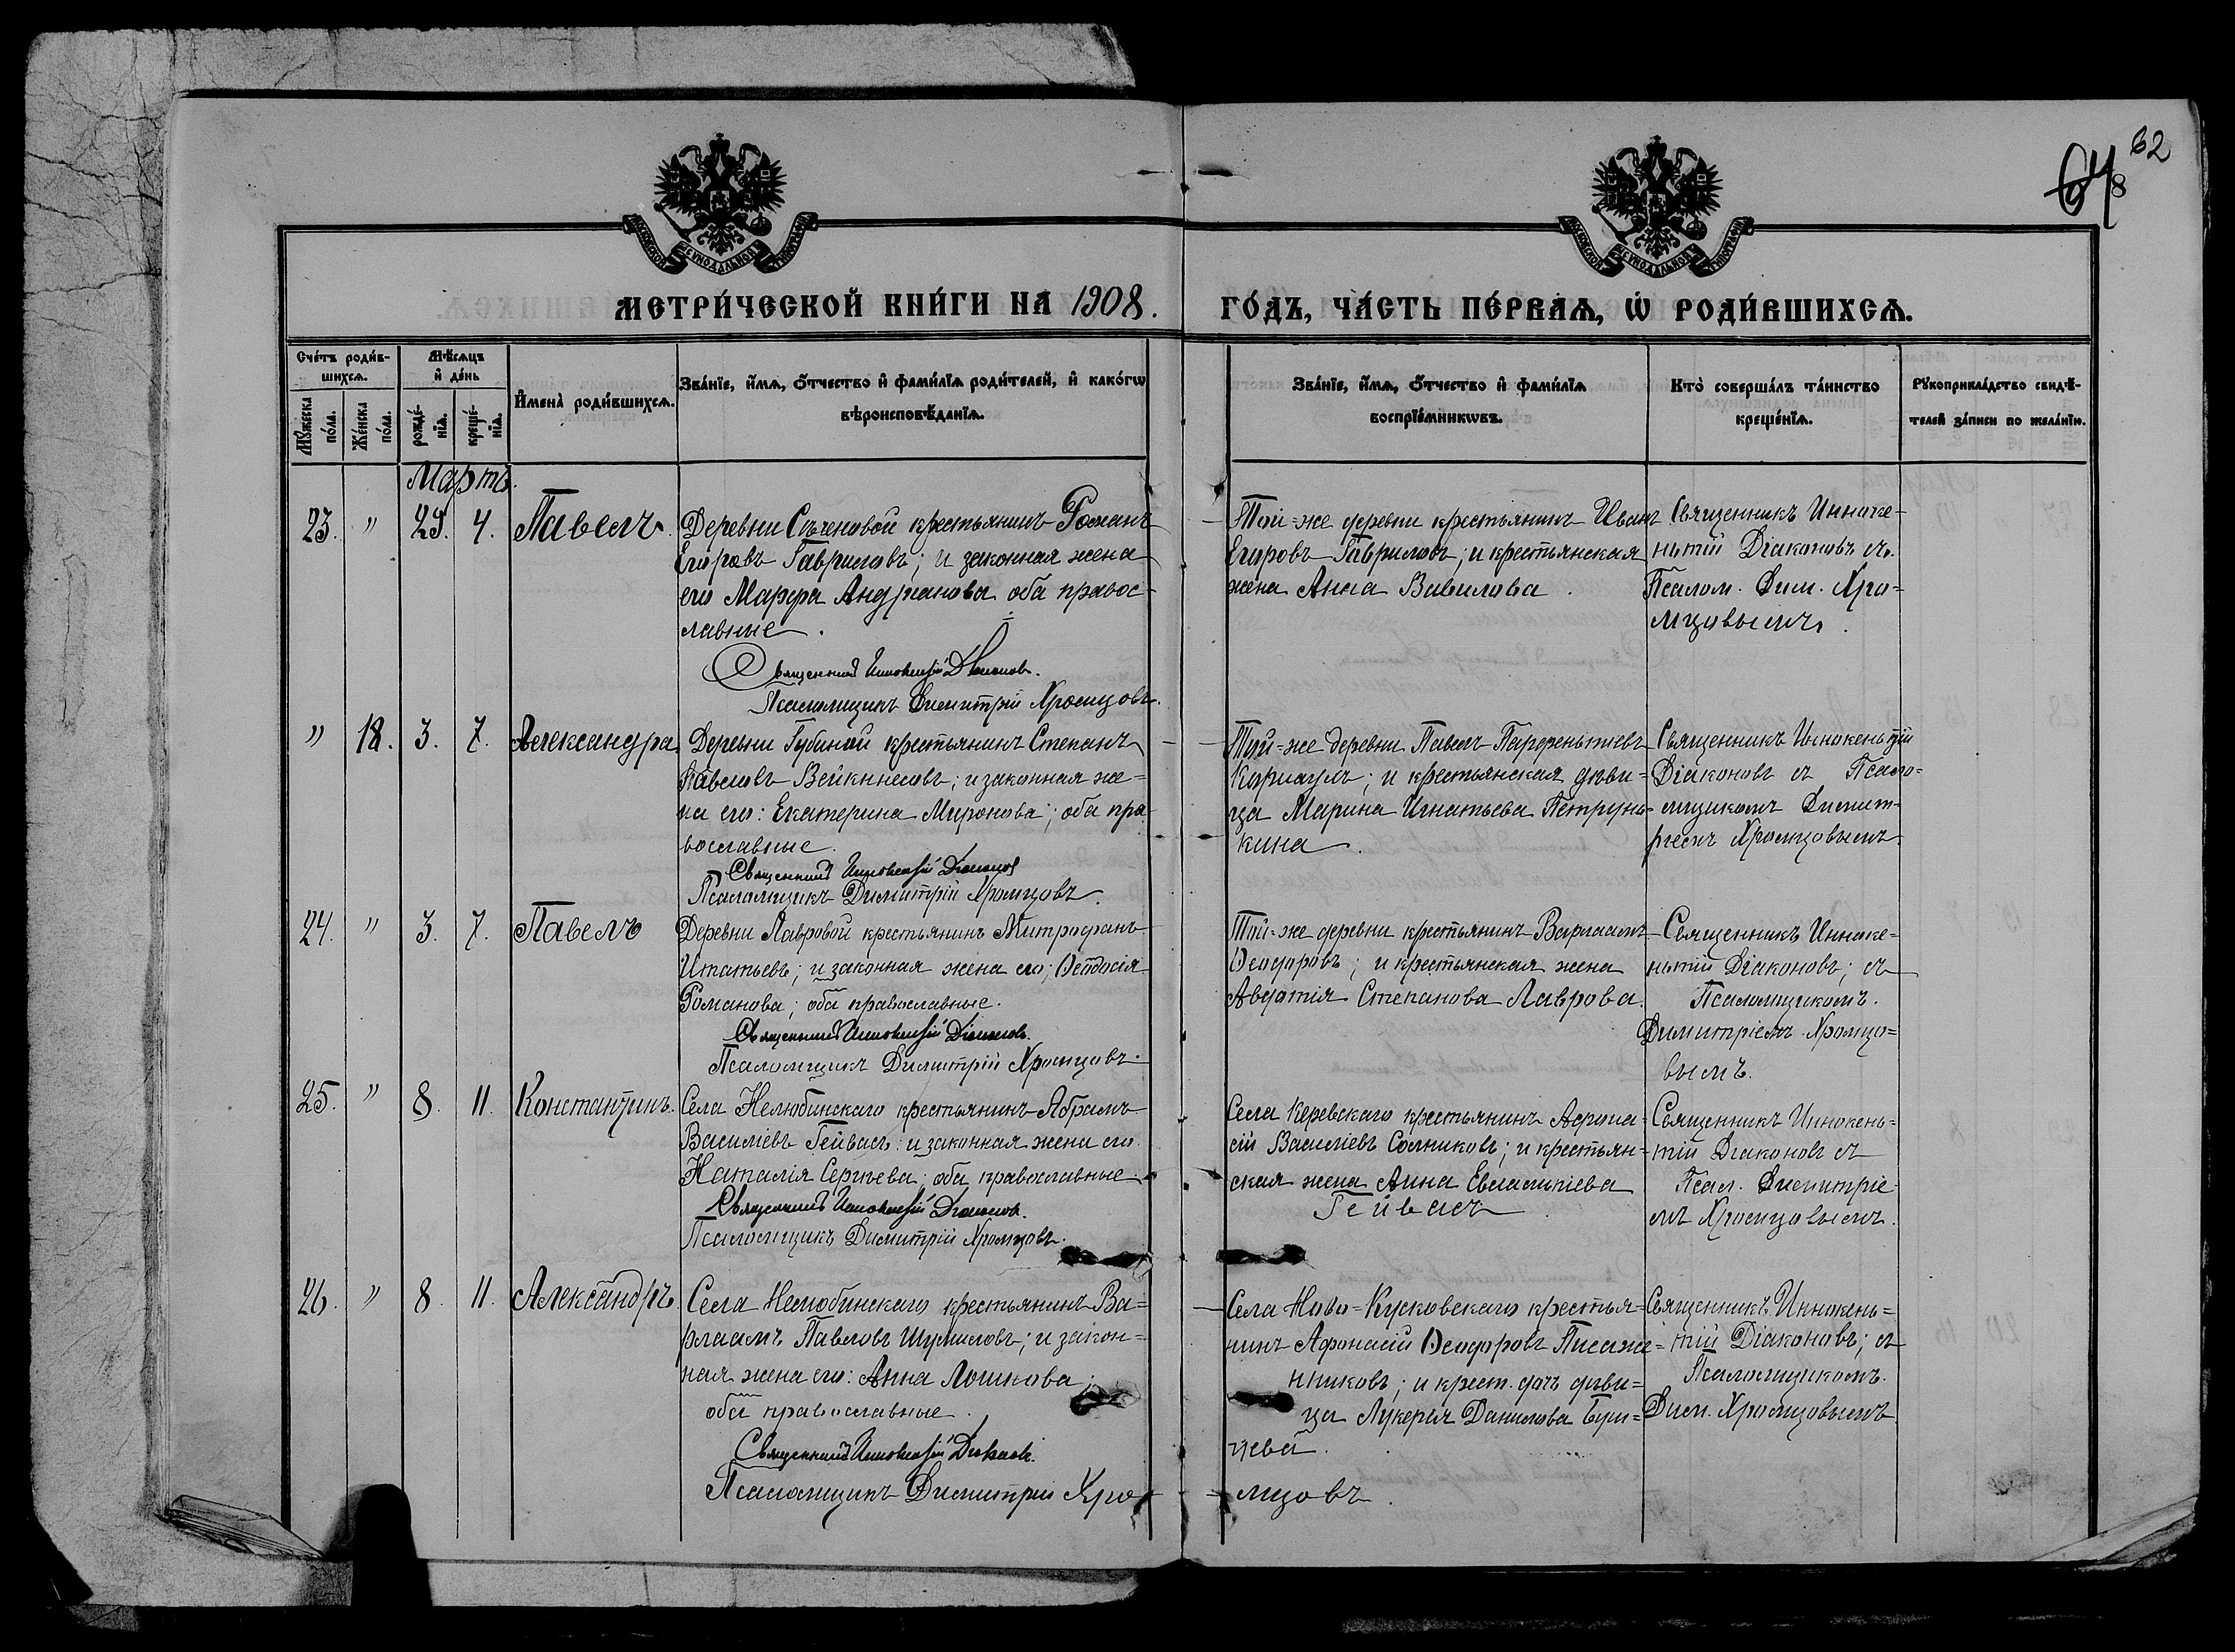 62
64
8
МОСКОВСКОЙ СѴНОДАЛЬНОЙ ТИПОГРАФІИ
МОСКОВСКОЙ СѴНОДАЛЬНОЙ ТИПОГРАФІИ
МЕТРИ́ЧЕСКОЙ КНИ́ГИ НА 1908. ГО́ДЪ, ЧА́СТЬ ПЕ́РВАѦ, Ѡ҆ РОДИ́ВШИХСѦ.
Сче́тъ роди́в-
шихсѧ.
Мѣ́сѧцъ
и҆ де́нь
Мꙋ́жеска по́ла.
Же́нска по́ла.
рожде́-
нїѧ.
креще́-
нїѧ.
И҆мена̀ роди́вшихсѧ.
Зва́нїе, и҆́мѧ, ѻ҆́тчество и҆ фами́лїѧ роди́телей, и҆ како́гѡ
вѣроисповѣ́данїѧ.
Зва́нїе, и҆́мѧ, ѻ҆́тчество и҆ фами́лїѧ
воспрїе́мникѡвъ.
Кто̀ соверша́лъ та́инство
креще́нїѧ.
Рꙋкоприкла́дство свидѣ́-
телей за́писи по жела́нїю.
Мартъ.
23. " 29. 4. Павелъ.
Деревни Спеченовой крестьянинъ Романъ
Егоровъ Гавриловъ; и законная жена
его Марфа Андрианова оба правос-
лавные.
Священникъ Иннокентій Діаконовъ.
Псаломщикъ Димитрій Хромцовъ.
Той-же деревни крестьянинъ Иванъ
Егоровъ Гавриловъ; и крестьянская
жена Анна Вавилова.
Священникъ Инноке-
нтій Діаконовъ съ
Псалом. Дим. Хро-
мцовымъ.
" 18. 3. 7. Александра
Деревни Губиной крестьянинъ Степанъ
Павловъ Вейкнисовъ; и законная же-
на его: Екатерина Миронова; оба пра-
вославные.
Священникъ Иннокентій Діаконовъ
Псаломщикъ Димитрій Хромцовъ.
Той-же деревни Павелъ Парфеньтиевъ
и крестьянская дѣви-
ца Марина Игнатьева Петрунь-
кина.
Священникъ Инокеньтій
Діаконовъ съ Псало-
мщикомъ Димит-
ріемъ Хромцовымъ.
24. " 3. 7. Павелъ
Деревни Лавровой крестьянинъ Митрофанъ
Игнатьевъ; и законная жена его; Ѳеодосія
Романова; оба православные.
Священникъ Иннокентій Діаконовъ.
Псаломщикъ Димитрій Хромцовъ.
Той-же деревни крестьянинъ Варлаамъ
Ѳеодоровъ; и крестьянская жена
Авдотія Степанова Лаврова.
Священникъ Инноке-
нтій Діаконовъ; съ
Псаломщикомъ.
Димитріемъ Хромцо-
вымъ.
25. " 8. 11. Константинъ.
Села Нелюбинскаго крестьянинъ Абрамъ
Василіевъ Гейвасъ: и законная жена его
Наталія Сергѣева; оба православные.
Священникъ Иннокентій Діаконовъ.
Псаломщикъ Димитрій Хромцовъ.
Села Керевскаго крестьянинъ Афона-
сій Василіевъ Солниковъ; и крестьян-
ская жена Анна Евлампіева
Гейвасъ.
Священникъ Иннокень-
тій Діаконовъ съ
Псал. Димитріе-
мъ Хромцовымъ.
26. " 8. 11. Александръ
Села Нелюбинскаго крестьянинъ Ва-
рлаамъ Павловъ Шумиловъ; и закон-
ная жена его: Анна Лошкова;
оба православные.
Священникъ Иннокентій Діаконовъ.
Псаломщикъ Димитрій Хро-
мцовъ.
Села Ново-Кусковскаго крестья-
нинъ Афонасій Ѳеодоровъ Писаже-
нниковъ; и крест. дочь дѣви-
ца Лукерья Данилова Бри-
цева.
Священникъ Иннокень-
тій Діаконовъ; съ
Псаломщикомъ.
Дим. Хромцовымъ